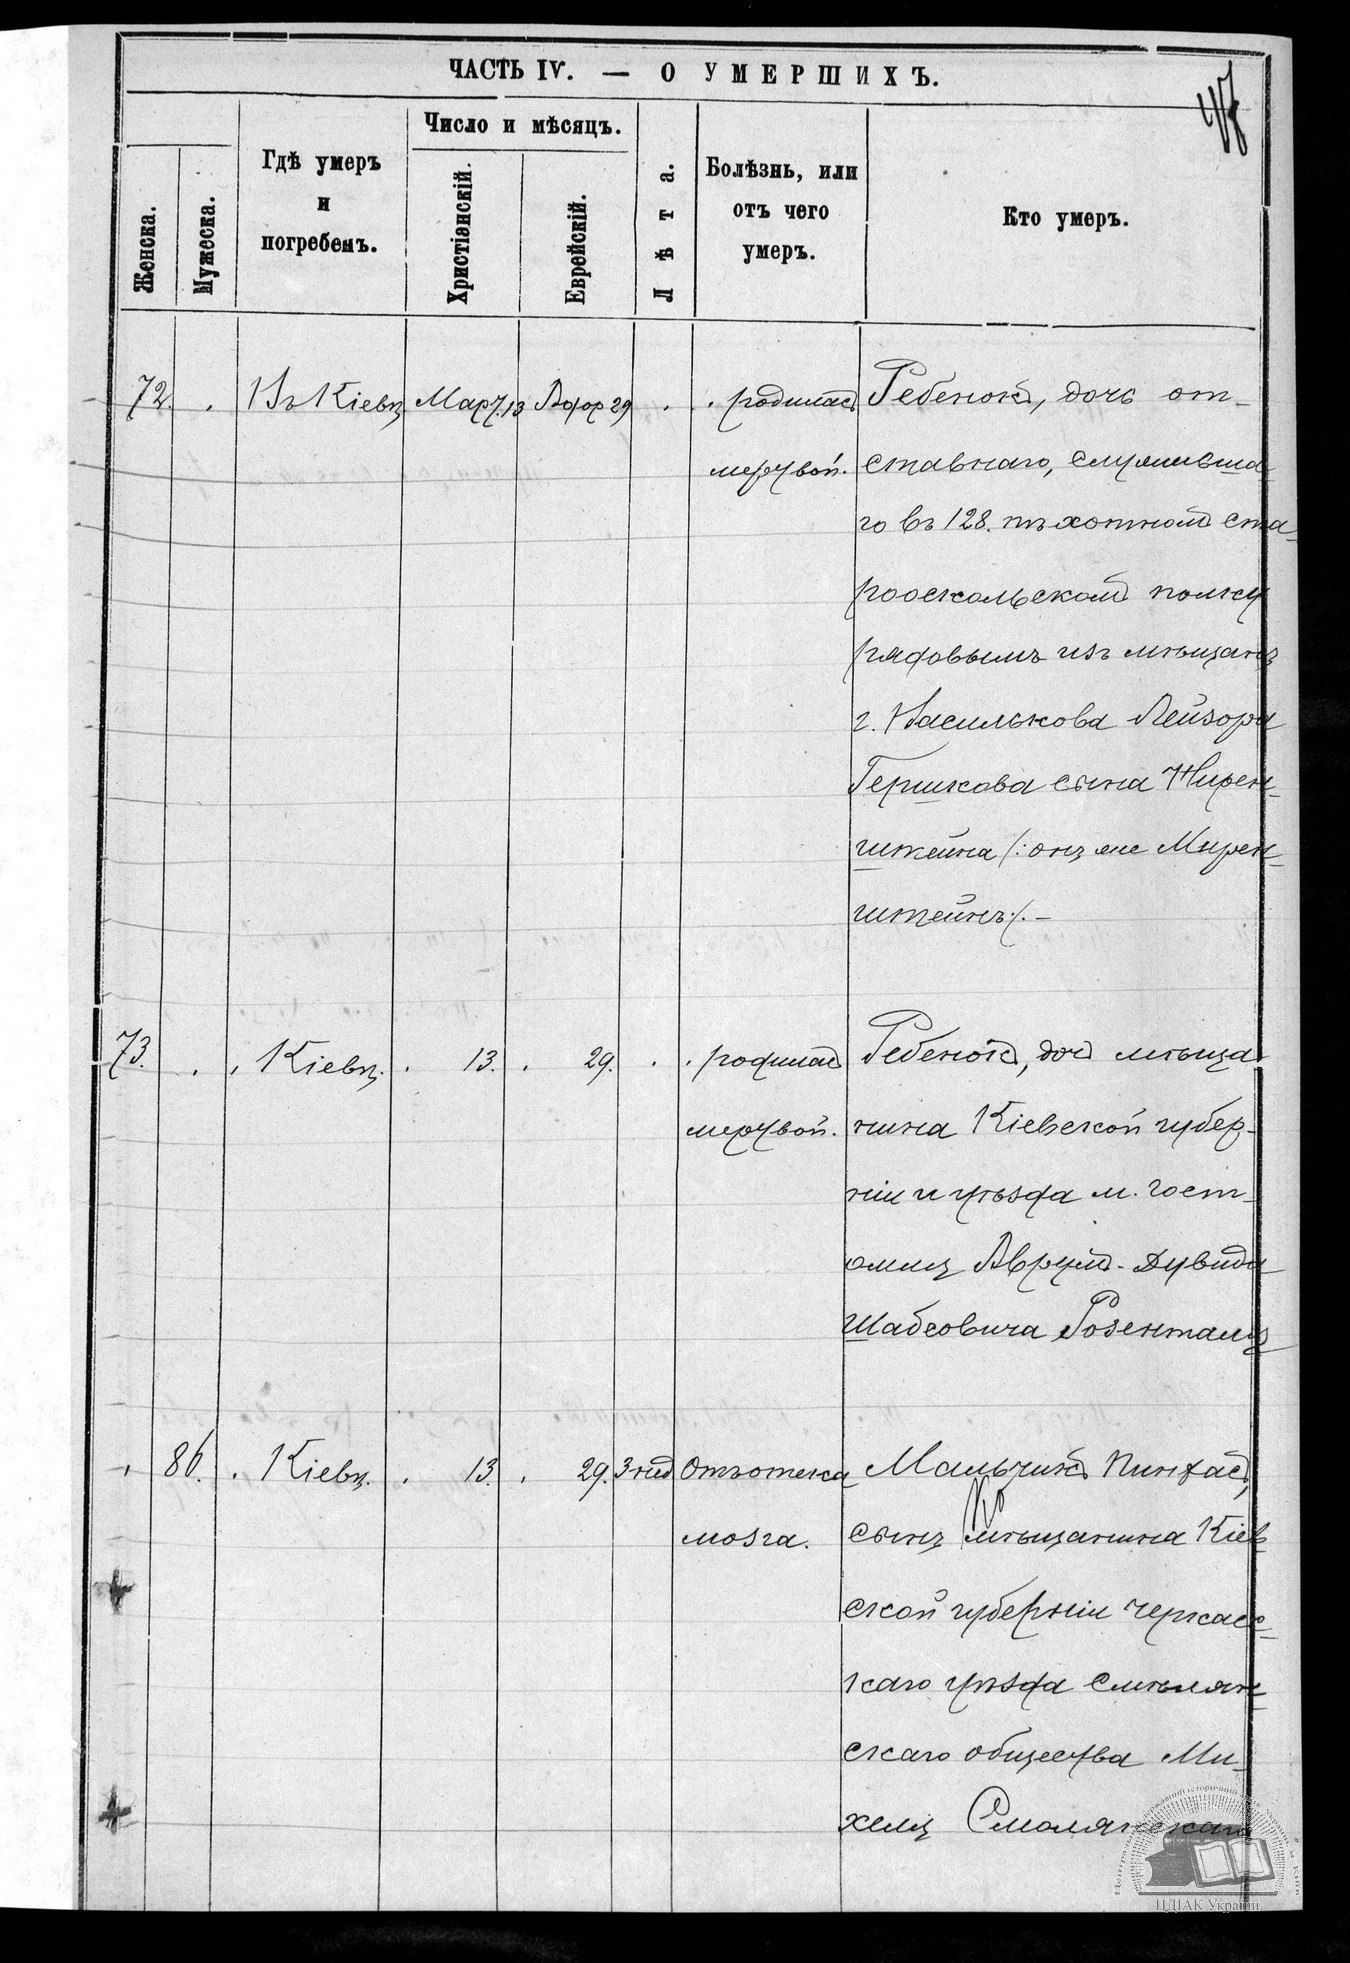 ЧАСТЬ IV. — О УМЕРШИХЪ.
Женска.
Мужеска.
Гдѣ умеръ
и
погребенъ.
Число и мѣсяцъ.
Христіанскій.
Еврейскій.
Лѣта.
Болѣзнь, или
отъ чего
умеръ.
Кто умеръ.
72. Въ Кіевѣ Март. 13 Адор 29 родилась Ребенокъ, дочь от-
мертвой. ставнаго, служивша-
го въ 128. пѣхотномъ Ста-
рооскольскомъ полку
рядовымъ изъ мѣщанъ
г. Василькова Лейзора
Гершкова сына Нирен-
штейна /: онъ же Мирен-
штейнъ:/. –
73. Кіевѣ. 13. 29. родилась Ребенокъ, дочь мѣща-
мертвой. нина Кіевской губер-
ніи и уѣзда м. Гост-
омля Аврумъ-Дувида
Шабсовича Розенталя
86. Кіевѣ. 13. 29. 3 нед Отъ отека Мальчикъ Пинхасъ,
мозга. сынъ мѣщанина Кіев-
ской губерніи Черкас-
каго уѣзда Смѣлян-
скаго общества Ми-
хеля Смолянскаго
ЦДІАК України